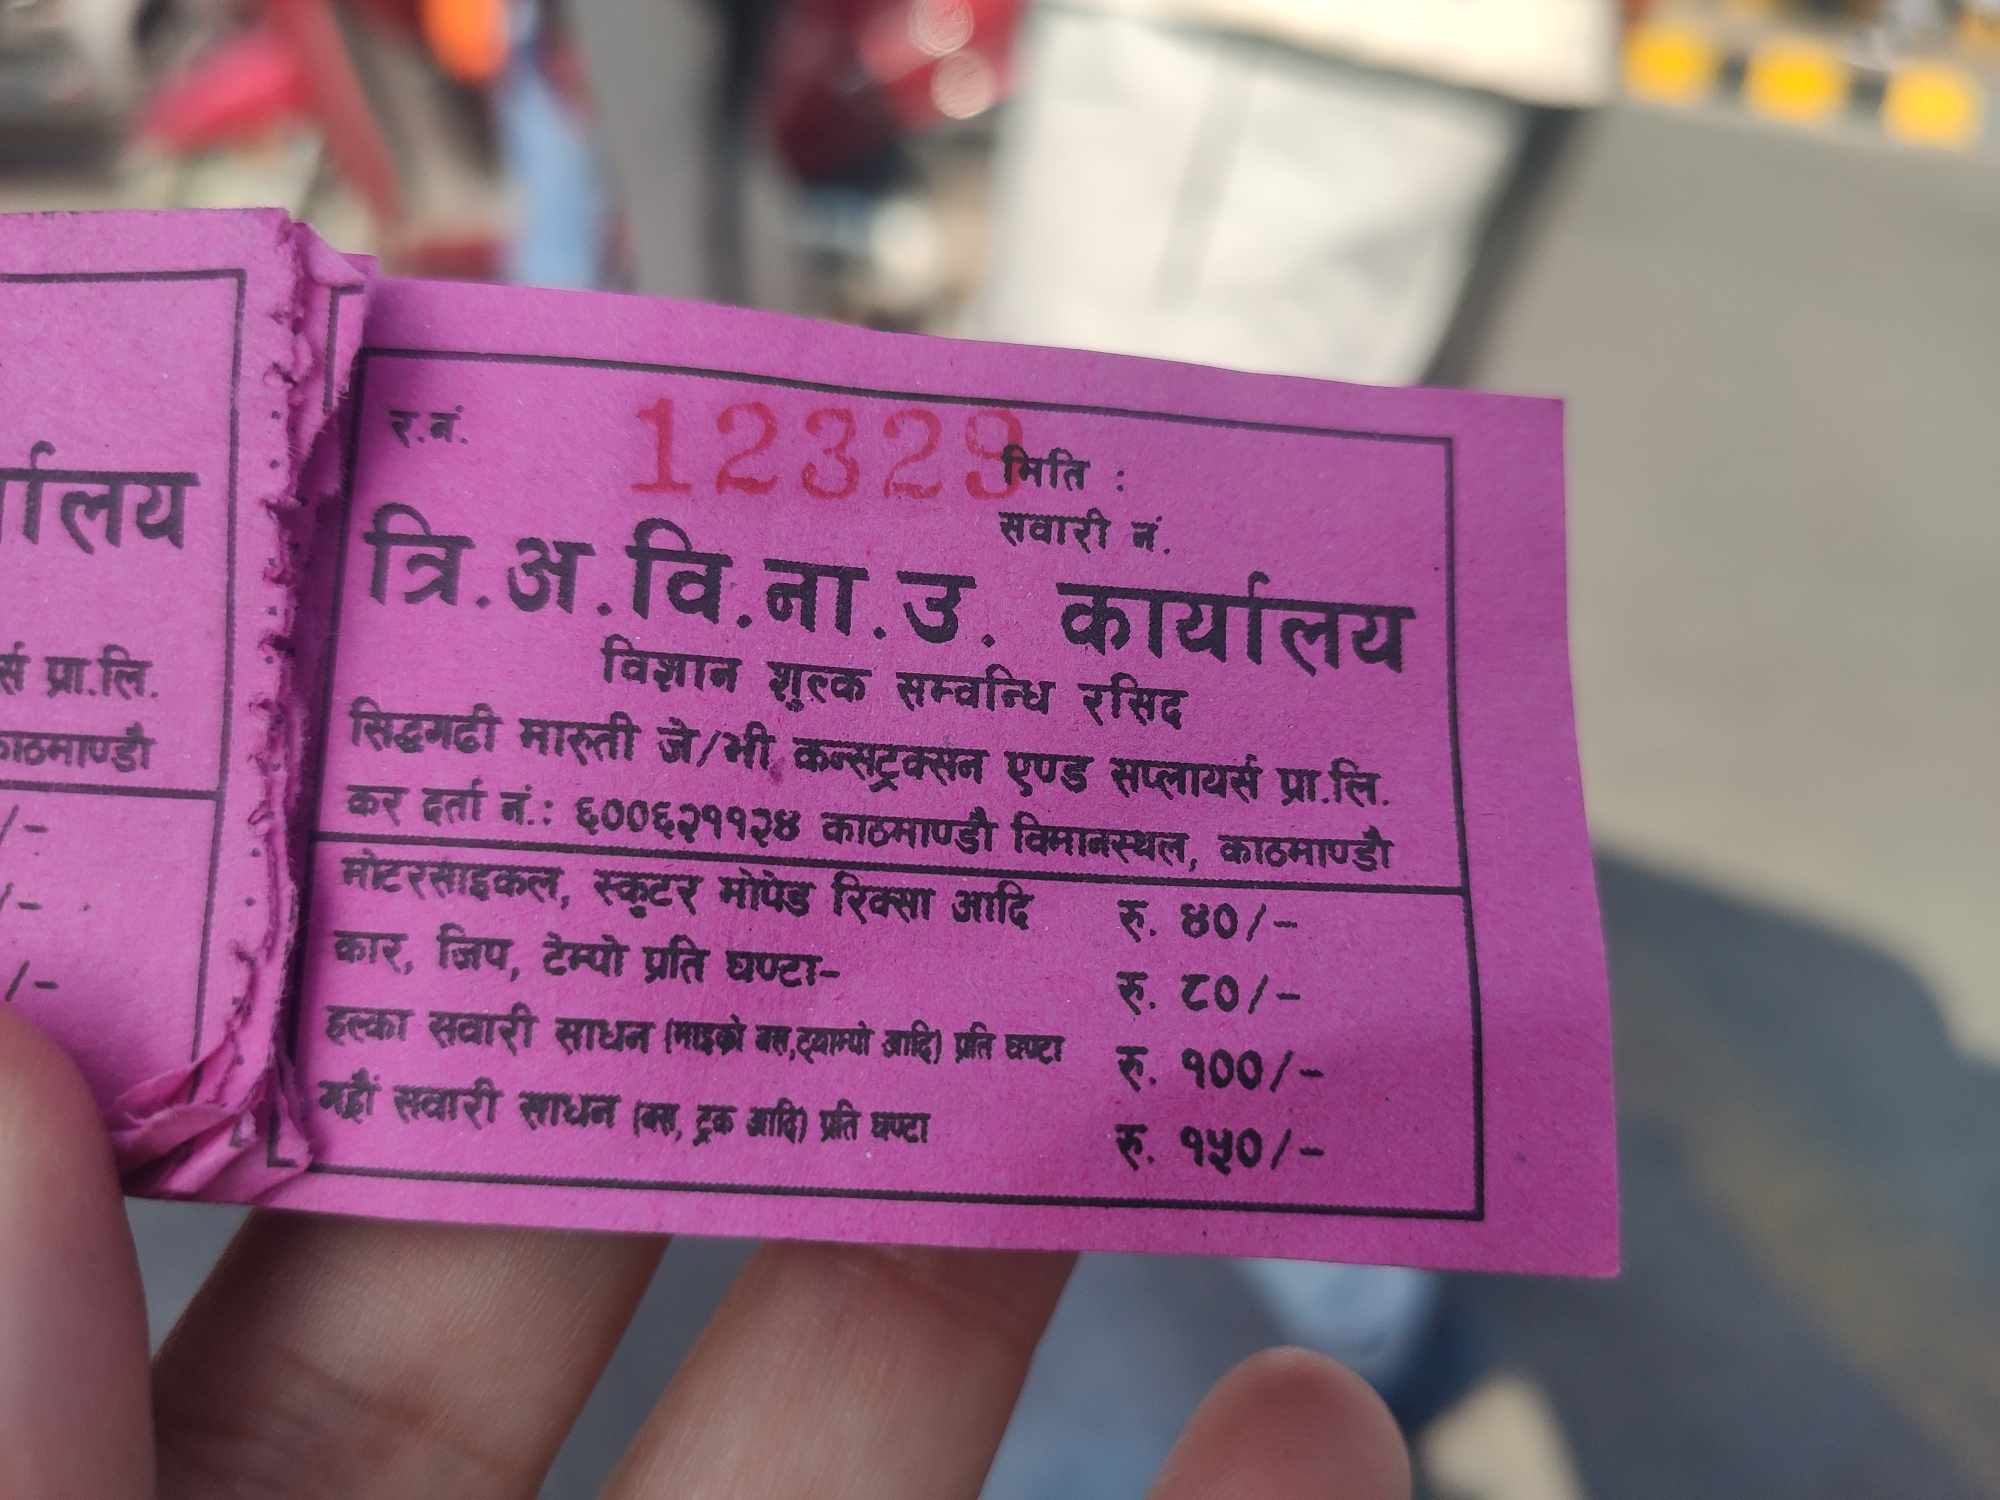 र्यालय
र्स प्रा.लि.
काठमाण्डौ
/-
/-
/-
र.नं. 12329
मिति :
सवारी नं.
त्रि.अ.वि.ना.उ. कार्यालय
विज्ञान शुल्क सम्वन्धि रसिद
सिद्धगढी मारुती जे/भी कन्सट्रक्सन एण्ड सप्लायर्स प्रा.लि.
कर दर्ता नं.: ६००६२११२४ काठमाण्डौ विमानस्थल, काठमाण्डौ
मोटरसाइकल, स्कुटर मोपेड रिक्सा आदि रु. ४०/-
कार, जिप, टेम्पो प्रति घण्टा- रु. ८०/-
हल्का सवारी साधन (माइको बस,ट्याम्पो आदि) प्रति घण्टा रु. १००/-
गह्रौं सवारी साधन (बस, ट्रक आदि) प्रति घण्टा रु. १५०/-